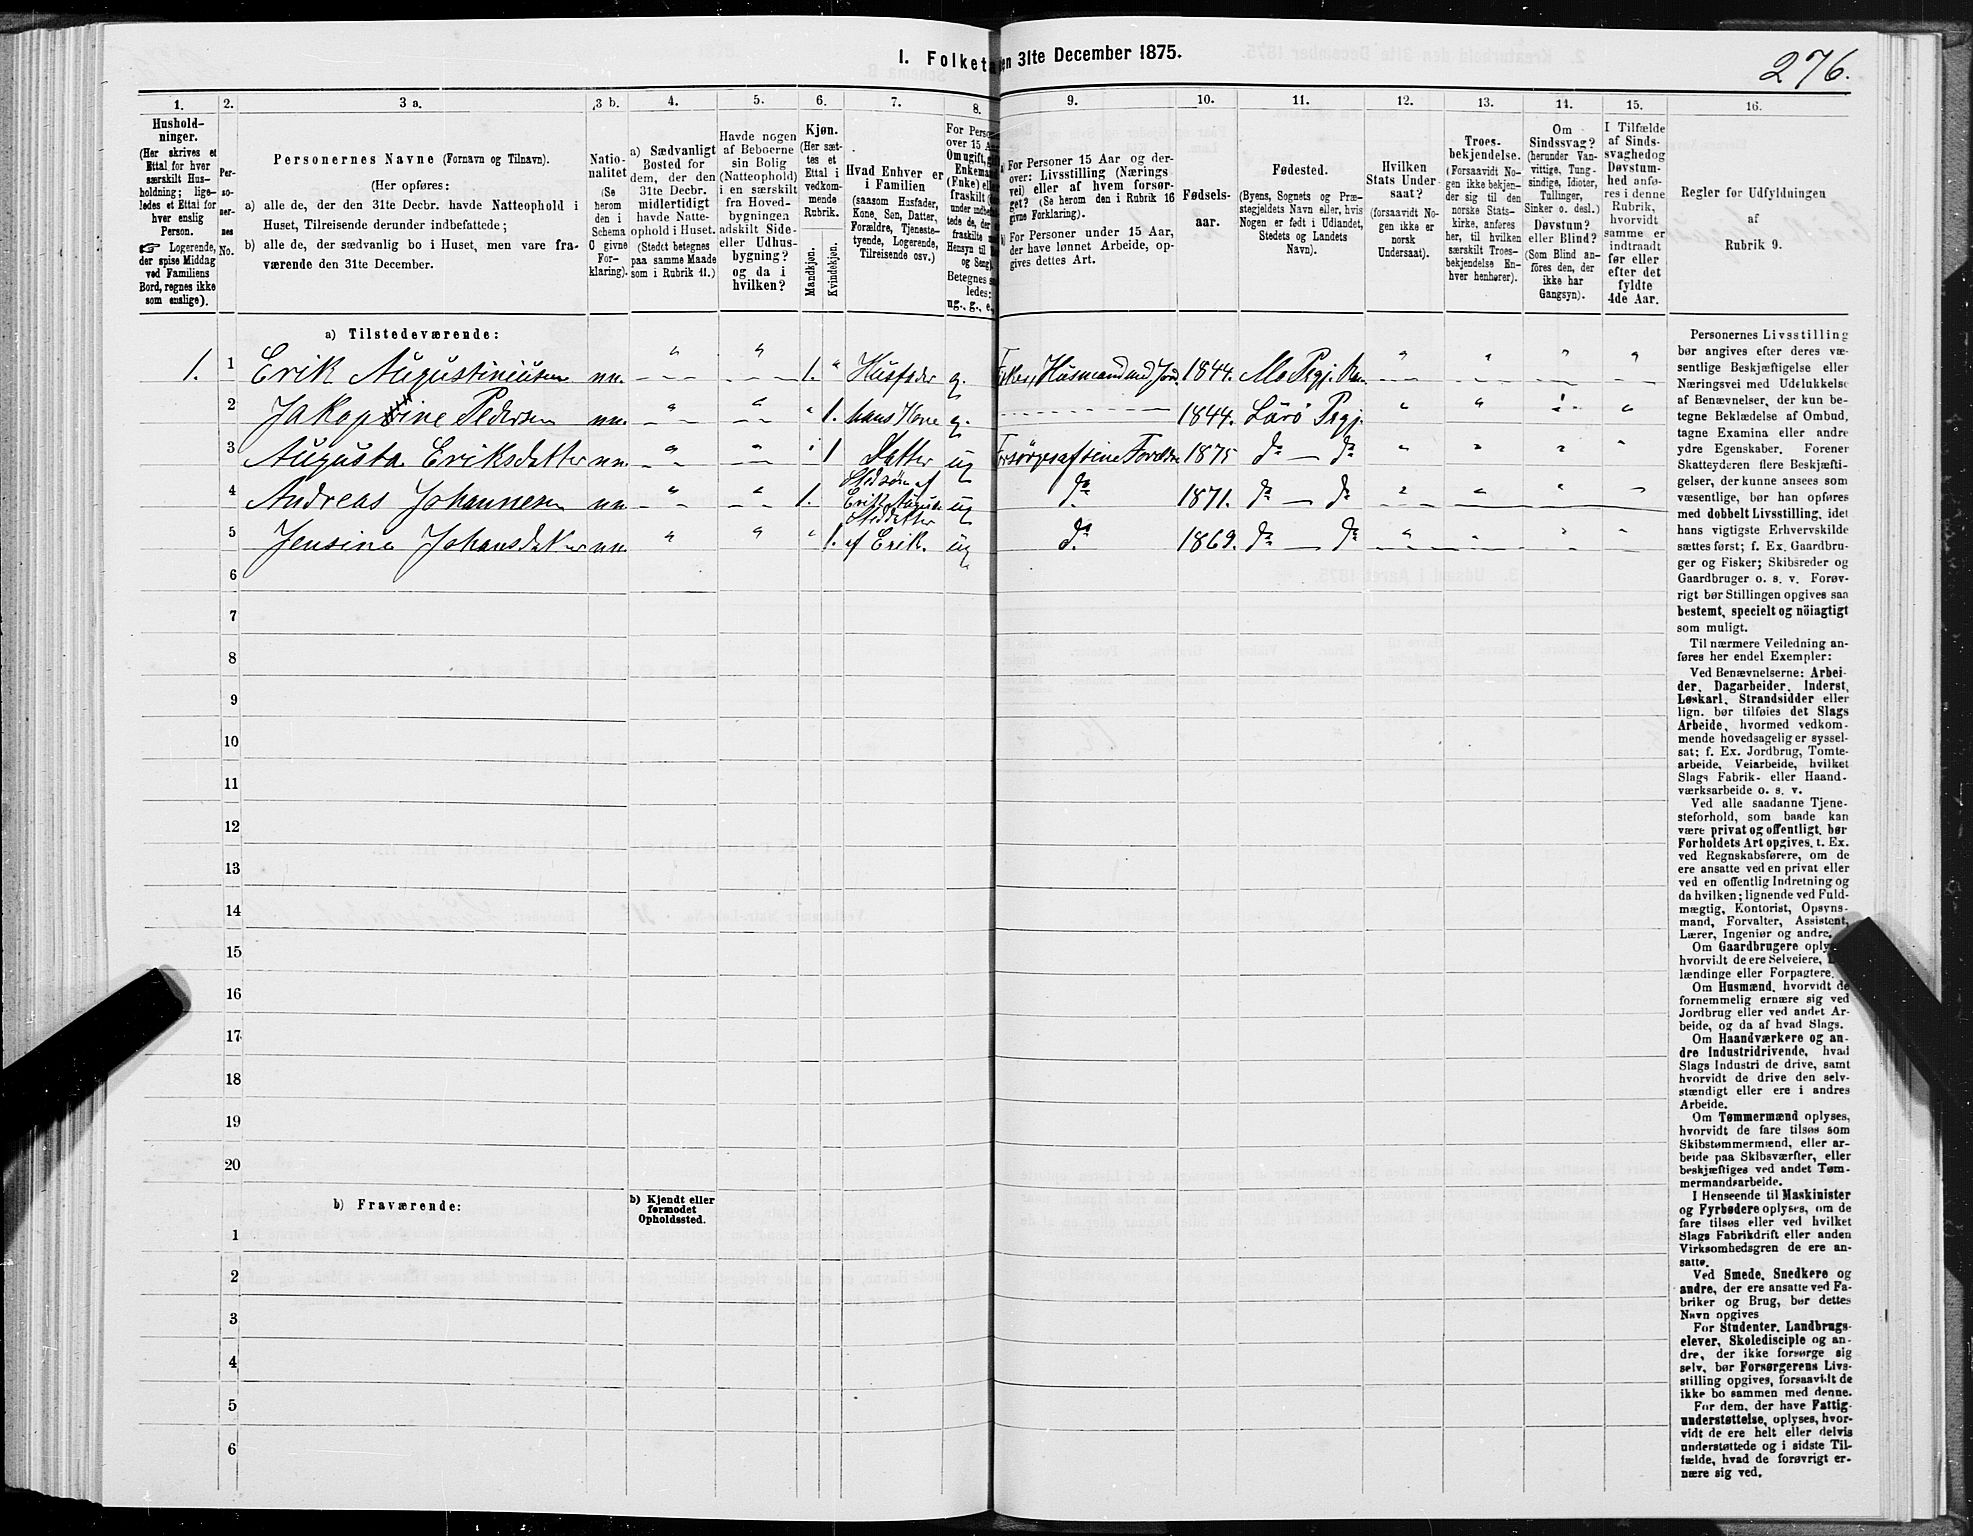 I. Folket
en 31te December 1875.
276.
1.
2.
3 a.
3 b.
4.
5.
6.
7.
8.
9.
10.
11.
12.
13.
14.
15.
16.
Hushold-
ninger.
(Her skrives et
Ettal for hver
særskilt Hus-
holdning; lige-
ledes et Ettal for
hver enslig
Person.
☞ Logerende,
der spise Middag
ved Familiens
Bord, regnes ikke
som enslige).
Per-
so-
ner-
nes
No.
Personernes Navne (Fornavn og Tilnavn).
(Her opføres:
a) alle de, der den 31te Decbr. havde Natteophold i
Huset, Tilreisende derunder indbefattede;
b) alle de, der sædvanlig bo i Huset, men vare fra-
værende den 31te December.
Natio-
nalitet
(Se
herom
den i
Schema
C givne
For-
klaring).
a) Sædvanligt
Bosted for
dem, der den
31te Decbr.
midlertidigt
havde Natte-
ophold i Huset.
(Stedet betegnes
paa samme Maade
som i Rubrik 11.)
Havde nogen
af Beboerne
sin Bolig
(Natteophold)
i en særskilt
fra Hoved-
bygningen
adskilt Side-
eller Udhus-
bygning?
og da i
hvilken?
Kjøn.
(Her sæt-
tes et
Ettal i
vedkom-
mende
Rubrik.
Mandkjøn.
Kvindekjøn.
Hvad Enhver er
i Familien
(saasom Husfader,
Kone, Søn, Datter,
Forældre, Tjeneste-
tyende, Logerende,
Tilreisende osv.)
For Perso
over 15 Aa
Om ugift, gi
Enkema
(Enke) el
fraskilt (
under indbef
tede de, de
fraskilte
Hensyn til
og Seng
Betegnes s
ledes:
ug., g., e.
a) For Personer 15 Aar og der-
over: Livsstilling (Nærings
vei) eller af hvem forsør-
get? (Se herom den i Rubrik 16
givne Forklaring).
b) For Personer under 15 Aar,
der have lønnet Arbeide, op-
gives dettes Art.
Fødsels-
aar.
Fødested.
(Byens, Sognets og Præ-
stegjeldets Navn eller, hvis
Nogen er født i Udlandet,
Stedets og Landets
Navn).
Hvilken
Stats Under
saat?
(forsaavidt No-
gen ikke er
norsk
Undersaat).
Troes-
bekjendelse.
(Forsaavidt No-
gen ikke bekjen-
der sig til den
norske Stats-
kirke, anføres
her, til hvilken
særskilt Troes-
bekjendelse En-
hver henhører).
Om
Sindssvag?
(herunder Van-
vittige, Tung-
sindige, Idioter,
Tullinger,
Sinker o. desl.)
Døvstum?
eller Blind?
(Som Blind an-
føres den, der
ikke har
Gangsyn).
I Tilfælde
af Sinds-
svaghedog
Døvstum-
hed anfø-
res i denne
Rubrik,
hvorvidt
samme er
indtraadt
før eller
efter det
fyldte
4de Aar.
Regler for Udfyldningen
af
Rubrik 9.
a) Tilstedeværende:
1. 1 Erik Augustiniusen nn. 1. Husfader g. Husmand med Jord 1844. Mo Prgj. Ran
2 Jakopine Pedersen nn. 1. hans Kone g. 1844. Lurø Prgj.
3 Augusta Eriksdatter nn. 1 Datter ug Forsørges af sine Foreldre 1875 do do
4 Andreas Johannesen nn. 1. Stedsøn af Erik ug do 1871. do do
5 Jensine Johansdatter nn. 1. Steddatter af Erik. ug do 1869. do do
6
7
8
9
10
11
12
13
14
15
16
17
18
19
20
b) Fraværende:
b) Kjendt eller
formodet
Opholdssted.
1
2
3
4
5
6
Personernes Livsstilling
bør angives efter deres væ-
sentlige Beskjæftigelse eller
Næringsvei med Udelukkelse
af Benævnelser, der kun be-
tegne Beklædelse af Ombud,
tagne Examina eller andre
ydre Egenskaber. Forener
Skatteyderen flere Beskjæfti-
gelser, der kunne ansees som
væsentlige, bør han opføres
med dobbelt Livsstilling, idet
hans vigtigste Erhvervskilde
sættes først; f. Ex. Gaardbru-
ger og Fisker; Skibsreder og
Gaardbruger o. s. v. Forøv-
rigt bør Stillingen opgives saa
bestemt, specielt og nöiagtigt
som muligt.
Til nærmere Veiledning an-
føres her endel Exempler:
Ved Benævnelserne: Arbei-
der, Dagarbeider, Inderst,
Løskarl, Strandsidder eller
lign. bør tilføies det Slags
Arbeide, hvormed vedkom-
mende hovedsagelig er syssel-
sat; f. Ex. Jordbrug, Tomte-
arbeide, Veiarbeide, hvilket
Slags Fabrik- eller Haand-
værksarbeide o. s. v.
Ved alle saadanne Tjene-
steforhold, som baade kan
være privat og offentligt, bør
Forholdets Art opgives, t. Ex.
ved Regnskabsførere, om de
ere ansatte ved en privat eller
ved en offentlig Indretning og
da hvilken; lignende ved Fuld-
mægtig, Kontorist, Opsyns-
mand, Forvalter, Assistent,
Lærer, Ingeniør og andre.
Om Gaardbrugere oply
hvorvidt de ere Selveiere,
lændinge eller Forpagtere.
Om Husmænd, hvorvidt de
fornemmelig ernære sig ved
Jordbrug eller ved andet Ar-
beide, og da af hvad Slags.
Om Haandværkere og an-
dre Industridrivende, hvad
Slags Industri de drive, samt
hvorvidt de drive den selv-
stændigt eller ere i andres
Arbeide.
Om Tømmermænd oplyses,
hvorvidt de fare tilsøs som
Skibstømmermænd, eller ar-
beide paa Skibsværfter, eller
beskjæftiges ved andet Tøm-
mermandsarbeide.
I Henseende til Maskinister
og Fyrbødere oplyses, om de
fare tilsøs eller ved hvilket
Slags Fabrikdrift eller anden
Virksomhedsgren de ere an-
satte.
Ved Smede, Snedkere og
andre, der ere ansatte ved Fa-
briker og Brug, bør dettes
Navn opgives
For Studenter, Landbrugs-
elever, Skoledisciple og an-
dre, der ikke forsørge sig
selv, bør Forsørgerens Livs-
stilling opgives, forsaavidt de
ikke bo sammen med denne.
For dem, der have Fattig-
understøttelse, oplyses, hvor-
vidt de ere helt eller delvis
understøttede og i sidste Til-
fælde, hvad de forøvrigt er-
nære sig ved.